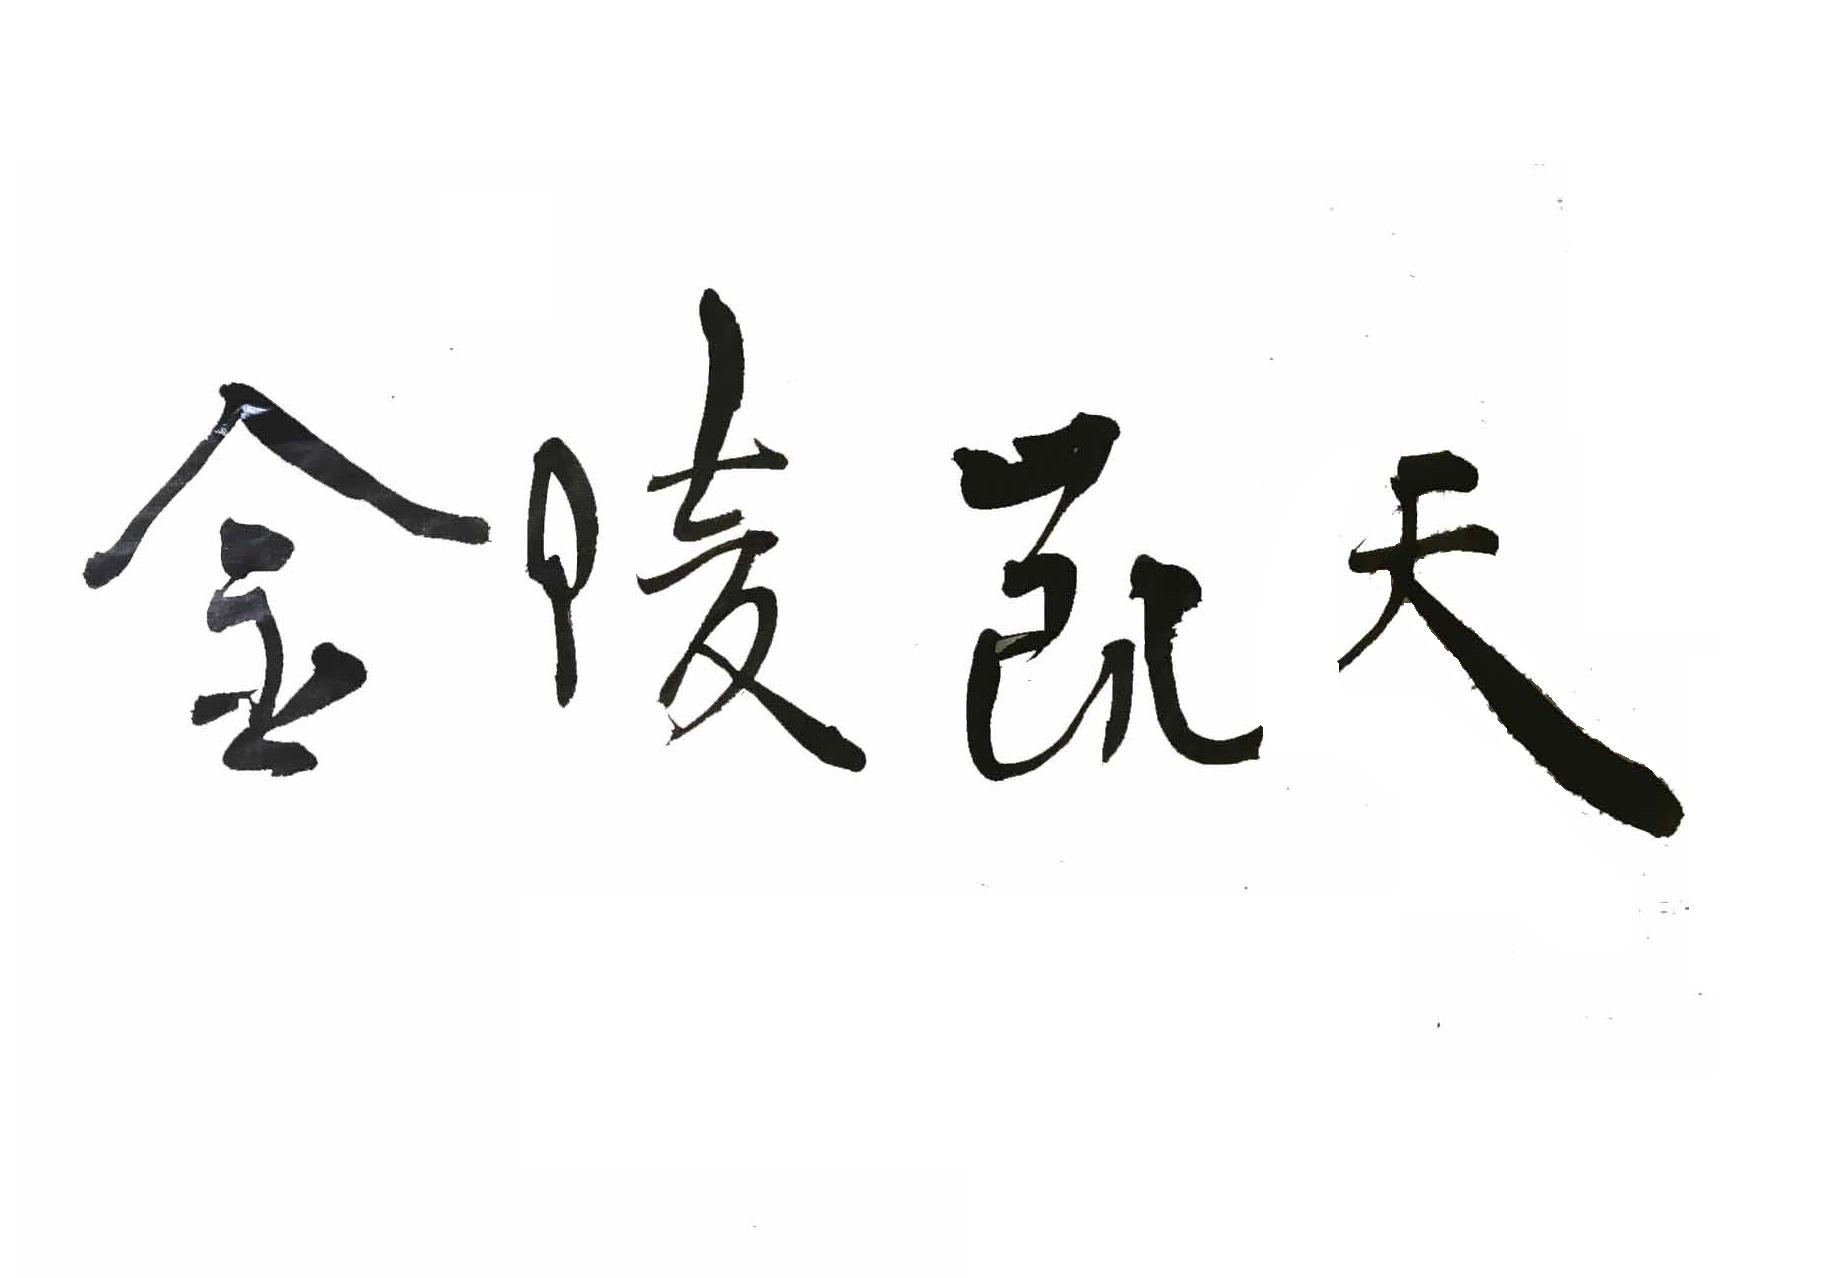 金陵凯天